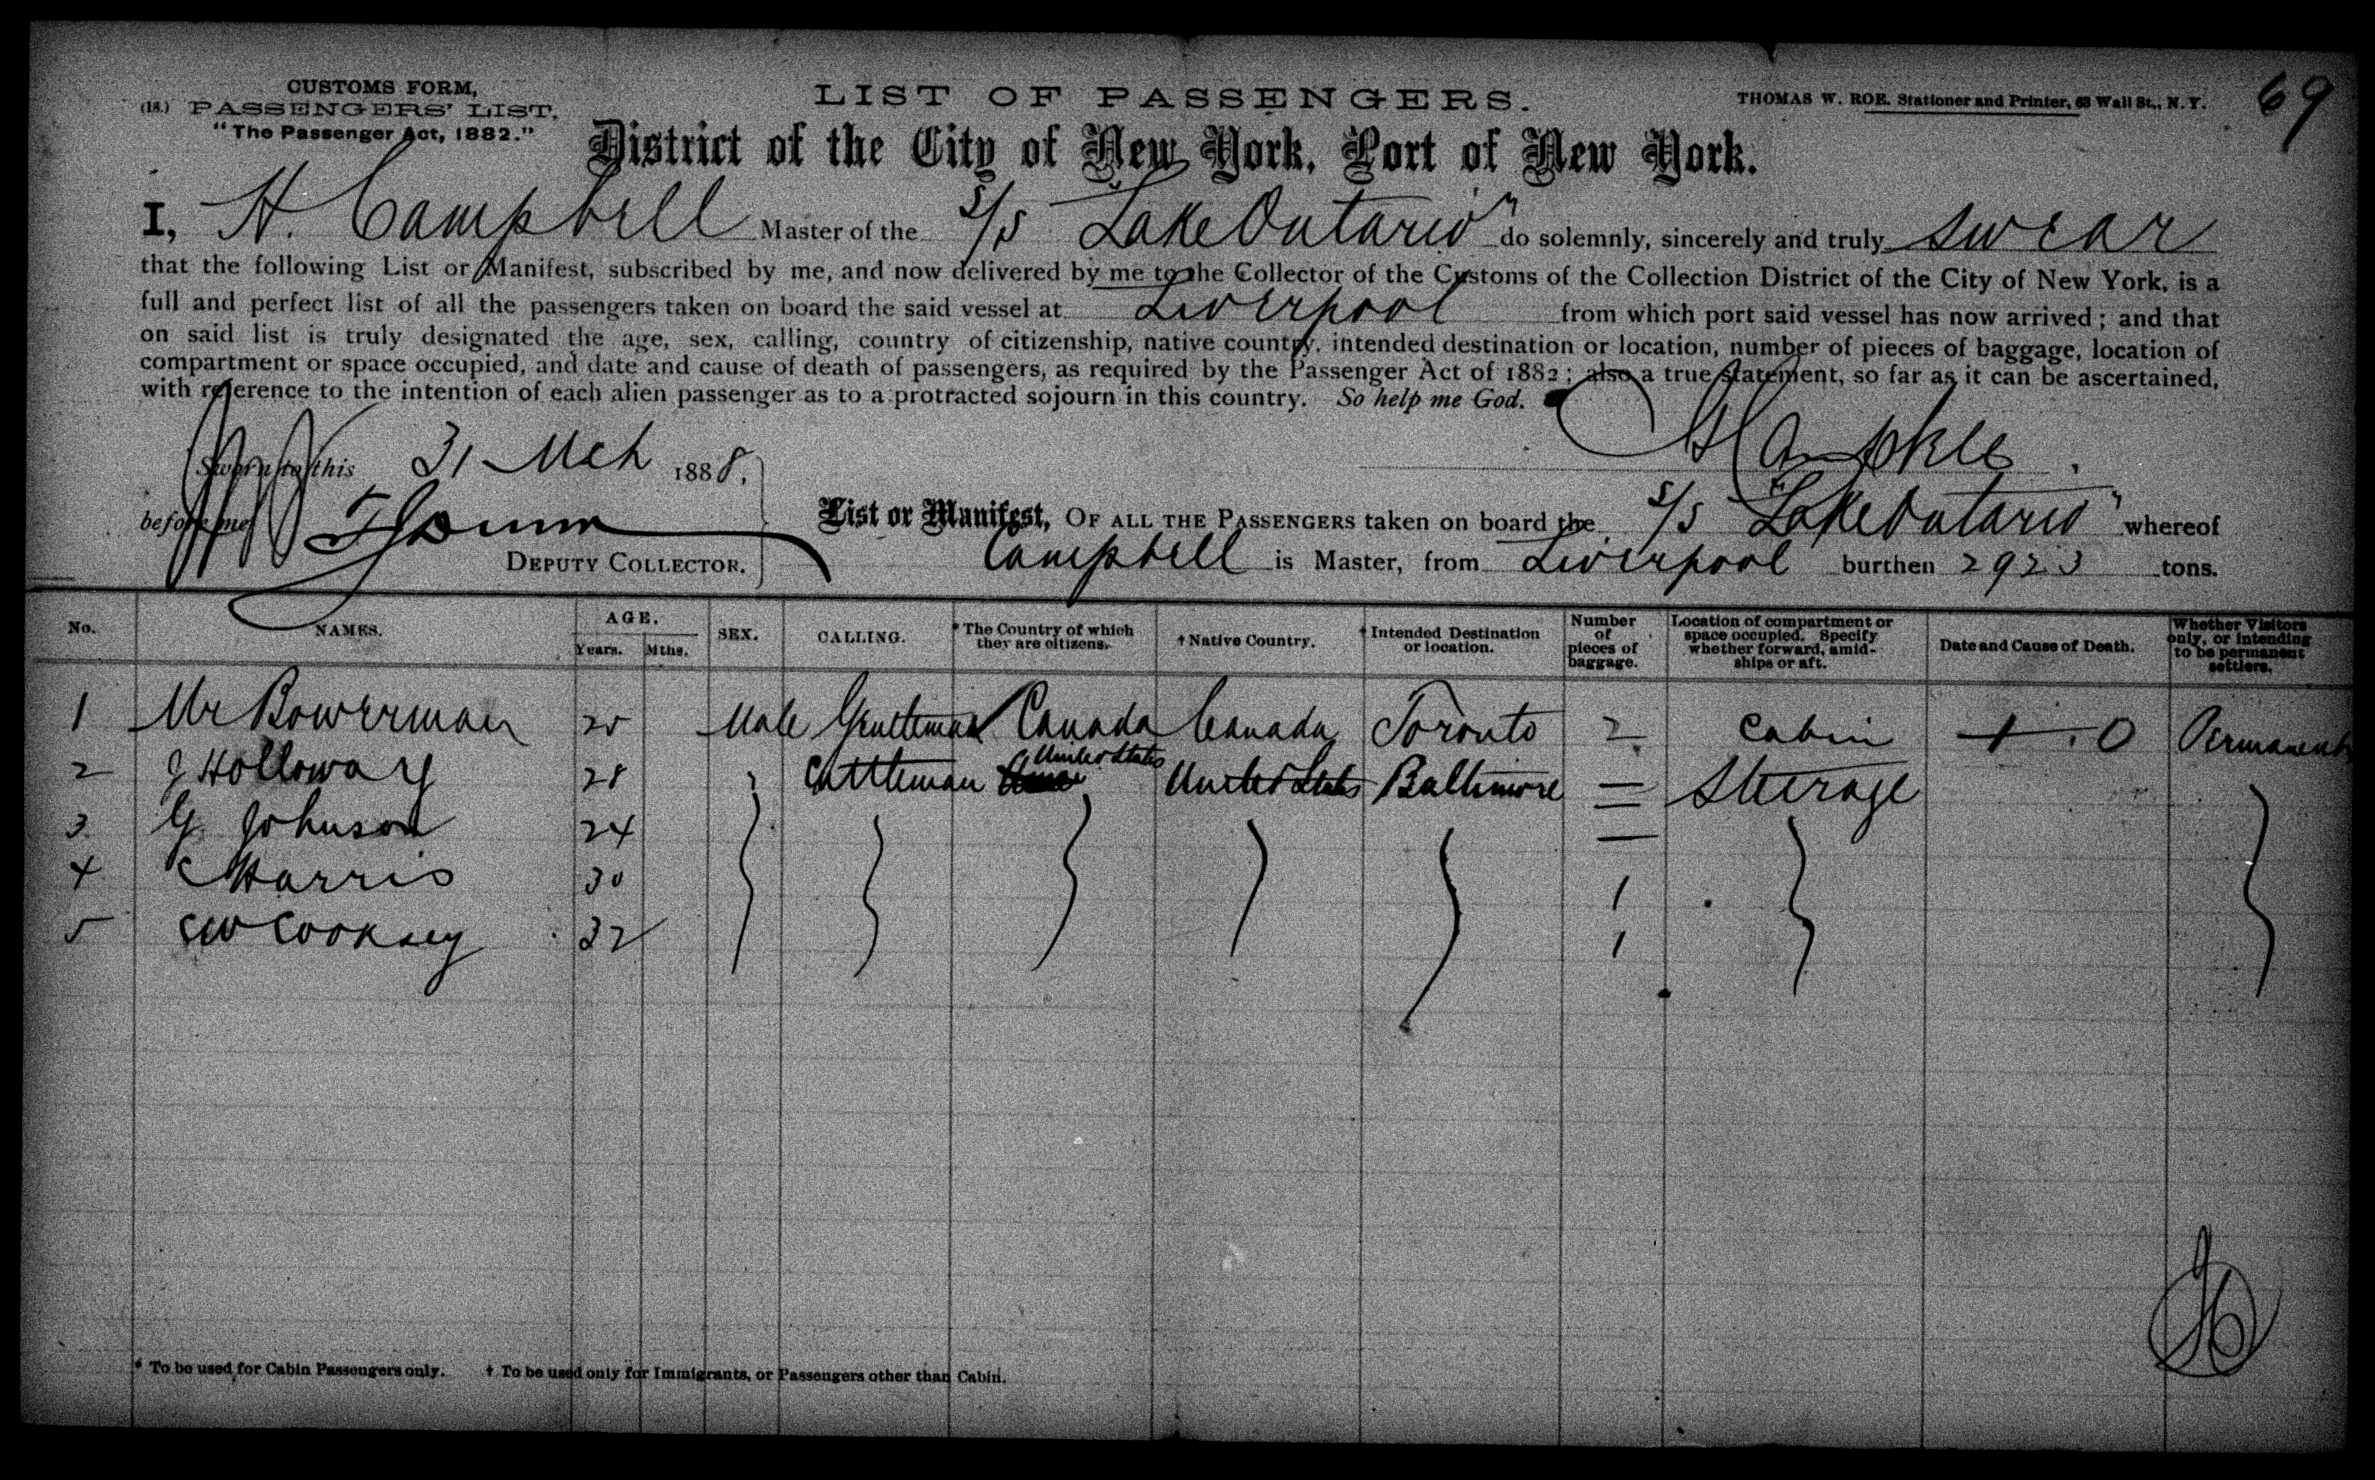 CUSTOMS FORM,
(18.) PASSENGERS' LIST,
"The Passenger Act, 1882."
LIST OF PASSENGERS.
THOMAS W. ROE. Stationer and Printer, 63 Wall St., N. Y.
69
District of the City of New York, Port of New York.
I, H. Campbell Master of the S/S "Lake Ontario" do solemnly, sincerely and truly swear
that the following List or Manifest, subscribed by me, and now delivered by me to the Collector of the Customs of the Collection District of the City of New York, is a
full and perfect list of all the passengers taken on board the said vessel at Liverpool from which port said vessel has now arrived; and that
on said list is truly designated the age, sex, calling, country of citizenship, native country, intended destination or location, number of pieces of baggage, location of
compartment or space occupied, and date and cause of death of passengers, as required by the Passenger Act of 1882; also a true statement, so far as it can be ascertained,
with reference to the intention of each alien passenger as to a protracted sojourn in this country. So help me God.
H Campbell
Sworn to this 31 Mch 1888,
before me
DEPUTY COLLECTOR.
List or Manifest, OF ALL THE PASSENGERS taken on board the S/S "Lake Ontario" whereof
Campbell is Master, from Liverpool burthen 2923 tons.
No. NAMES. AGE. Years. Mths. SEX. CALLING. * The Country of which they are citizens. † Native Country. † Intended Destination or location. Number of pieces of baggage. Location of compartment or space occupied. Specify whether forward, amidships or aft. Date and Cause of Death. Whether Visitors only, or intending to be permanent settlers.
1 Mr Bowerman 20 Male Gentleman Canada Canada Toronto 2 Cabin Permanent
2 J Holloway 28 " Cattleman United States United States Baltimore = Steerage
3 G Johnson 24 —
4 C Harris 30 1
5 CW Cooksey 32 1
* To be used for Cabin Passengers only. † To be used only for Immigrants, or Passengers other than Cabin.